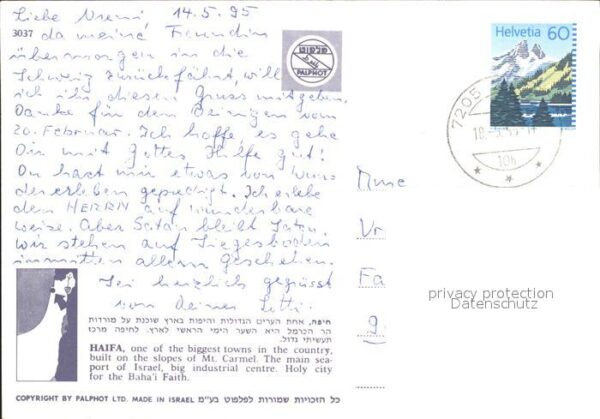 Liebe Vreni, 14.5.95
3037 da meine Freundin
übermorgen in die
Schweiz zurückfährt, will
ich ihr diesen Gruss mitgeben.
Danke für den Deinigen vom
20. Februar. Ich hoffe es gehe
Dir mit Gottes Hilfe gut!
Du hast mir etwas von Wun-
der erleben gepredigt. Ich erlebe
den HERRN auf wunderbare
weise. Aber Satan bleibt Satan.
Wir stehen auf Siegesboden
inmitten allem Geschehen.
Sei herzlich gegrüsst
von deiner
פלפוט
PALPHOT
Helvetia 60
7205
18.-5.95
Vr
Fa
privacy protection
Datenschutz
חיפה, אחת הערים הגדולות והיפות בארץ שוכנת על מורדות
הר הכרמל היא השער הימי הראשי לארץ. לחיפה מרכז
תעשיתי גדול.
HAIFA, one of the biggest towns in the country,
built on the slopes of Mt. Carmel. The main sea-
port of Israel, big industrial centre. Holy city
for the Baha'i Faith.
COPYRIGHT BY PALPHOT LTD. MADE IN ISRAEL כל הזכויות שמורות לפלפוט בע"מ